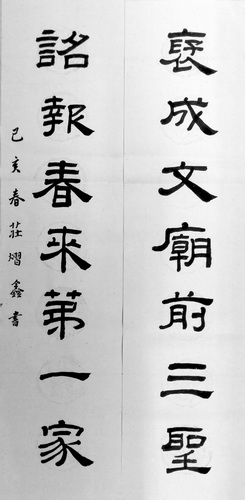 褒成文廟前三聖
詔報春來第一家
己亥春莊熠鑫書